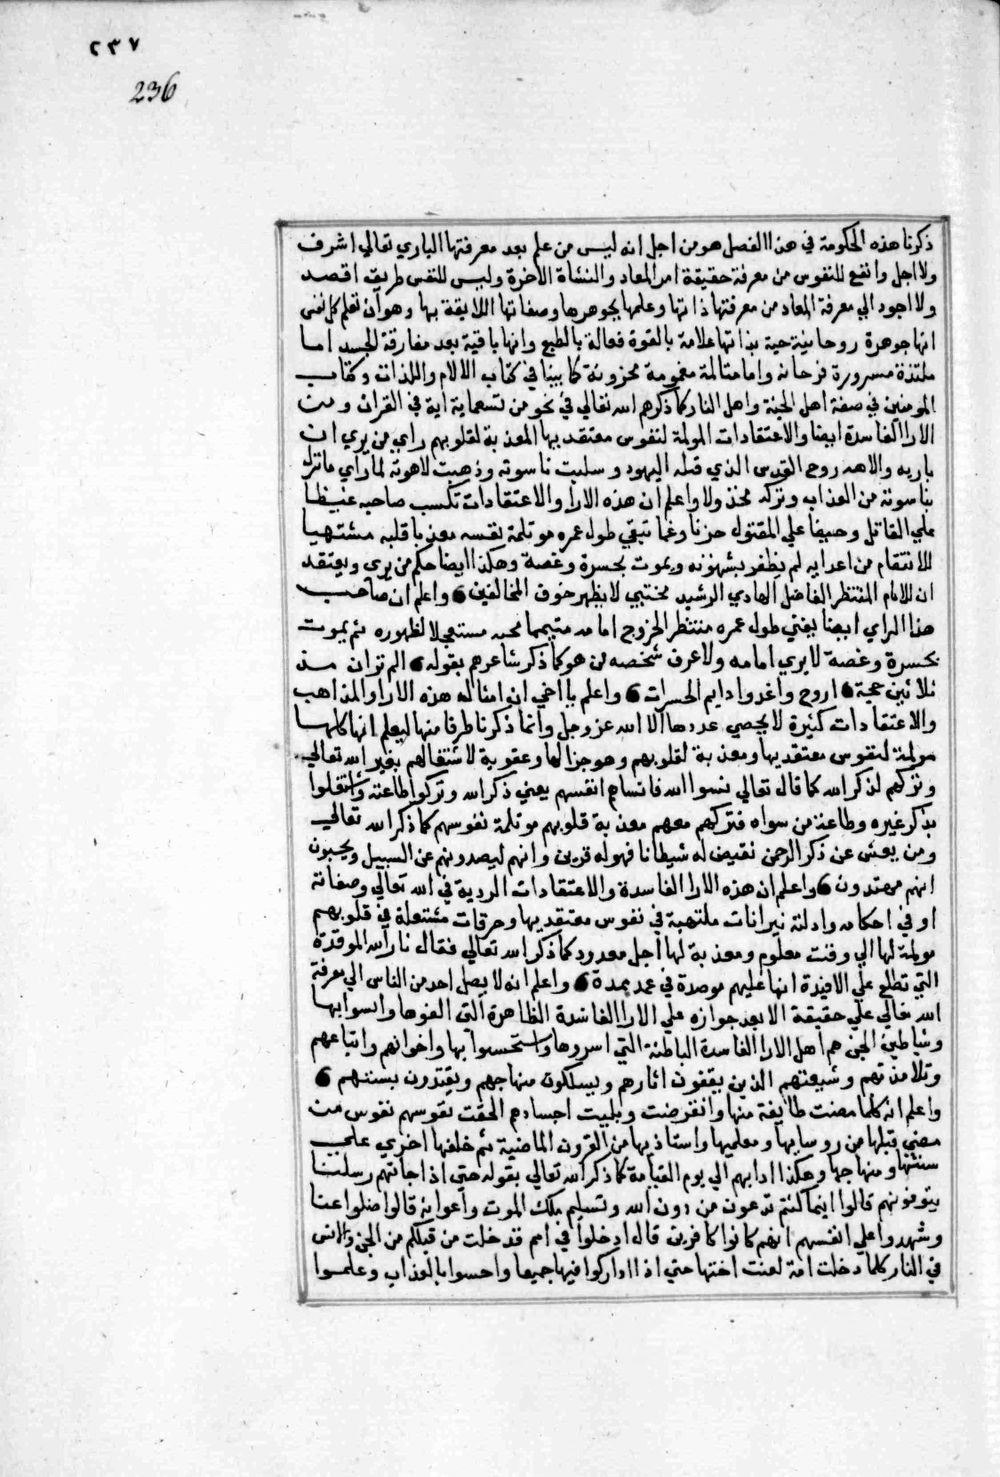 ٢٣٧
236
ذكرنا هذه الحكومة في هذا الفصل هو من اجل انه ليس من علم بعد معرفتها الباري تعالي اشرف
ولا اجل وانفع للنفوس من معرفة حقيقة امر المعاد والنشاة الاخرة وليس للنفس طريق اقصد
ولا اجود الي معرفة المعاد من معرفتها ذاتها وعلمها بجوهرها وصفاتها اللايقة بها وهو ان تعلم كل نفس
انها جوهرة روحانية حية بذاتها علامة بالقوة فعالة بالطبع وانها باقية بعد مفارقة الجسد اما
ملتذة مسرورة فرحانه واما متالمة مغمومة محزونة كما بينا في كتاب الالام واللذات وكتاب
المومنين في صفة اهل الجنة واهل النار كما ذكرهم الله تعالي في نحو من تسعماية اية في القران ومن
الارا الفاسدة ايضا والاعتقادات المولمة لنفوس معتقديها المعذبة لقلوبهم راي من يري ان
باريه والاهه روح القدس الذي قتله اليهود وسلبت ناسوته وذهبت لاهوته لما راي ما نزل
بناسوته من العذاب وتركه مخذولا واعلم ان هذه الارا والاعتقادات تكسب صاحبه غيظا
علي القاتل وحيفا علي المقتول حزنا وغما تبقي طول عمره موتلمة نفسه معذبا قلبه مشتهيا
للانتقام من اعدايه لم يظفر بشهوته ويموت بحسرة وغصة وهكذا ايضا حكم من يري ويعتقد
ان الامام المنتظر الفاضل الهادي الرشيد مختبي لا يظهر خوف المخالفين 6 واعلم ان صاحب
هذا الراي ايضا يفني طول عمره منتظر الخروج امامه متيمما محبه مستعجلا لظهوره ثم يموت
بحسرة وغصة لا يري امامه ولا عرف شخصه من هو كما ذكر شاعرهم بقوله 6 الم تر ان مذ
ثلاثين حجة 6 اروح واغدوا دايم الحسرات 6 واعلم يا اخي ان امثاله هذه الارا والمذاهب
والاعتقادات كثيرة لا يحصي عددها الا الله عز وجل وانما ذكرنا طرفا منها ليعلم انها كلها
مولمة لنفوس معتقديها ومعذبة لقلوبهم وهو جزا لها وعقوبة لاشتغالهم بغير الله تعالي
وتركهم لذكر الله كما قال تعالي نسوا الله فانساهم انفسهم يعني ذكر الله وتركوا طاعته واشتغلوا
بذكر غيره وطاعة من سواه فتركهم معهم معذبة قلوبهم موتلمة نفوسهم كما ذكر الله تعالي
ومن يعش عن ذكر الرحمن نقيض له شيطانا فهو له قرين وانهم ليصدونهم عن السبيل ويحسبون
انهم مهتدون 6 واعلم ان هذه الارا الفاسدة والاعتقادات الردية في الله تعالي وصفاته
او في احكامه وادلته نيرانات ملتهبة في نفوس معتقديها وحرقات مشتعلة في قلوبهم
مولمة لها الي وقت معلوم ومعذبة لها اجل معدود كما ذكر الله تعالي فقال نار الله الموقدة
التي تطلع علي الافيدة انها عليهم موصدة في عمد ممددة 6 واعلم انه لا يصل احد من الناس الي معرفة
الله تعالي علي حقيقة الا بعد جوازه علي الارا الفاسدة الظاهرة التي الفوها وانسوا بها
وشياطين الجن هم اهل الارا الفاسدة الباطنة التي اسروها واستحسنوا بها واخوانهم واتباعهم
وتلامذتهم وشيعتهم الذين يقفون اثارهم ويسلكون منهاجهم ويقتدون بسنتهم 6
واعلم انه كلما مضت طايفة منها وانقرضت وبليت اجسادهم الحقت نفوسهم نفوس من
مضي قبلها من روسايها ومعلميها واستاذيها من القرون الماضية ثم خلفها اخري علي
سنتها ومنهاجها وهكذا دابهم الي يوم القيامة كما ذكر الله تعالي بقوله حتي اذا جاتهم رسلنا
يتوفونهم قالوا اينما كنتم تدعون من دون الله وتسليم ملك الموت واعوانه قالوا ضلوا عنا
وشهدوا علي انفسهم انهم كانوا كافرين قال ادخلوا في امم قد خلت من قبلكم من الجن والانس
في النار كلما دخلت امة لعنت اختها حتي اذا اداركوا فيها جميعا واحسوا بالعذاب وعلموا